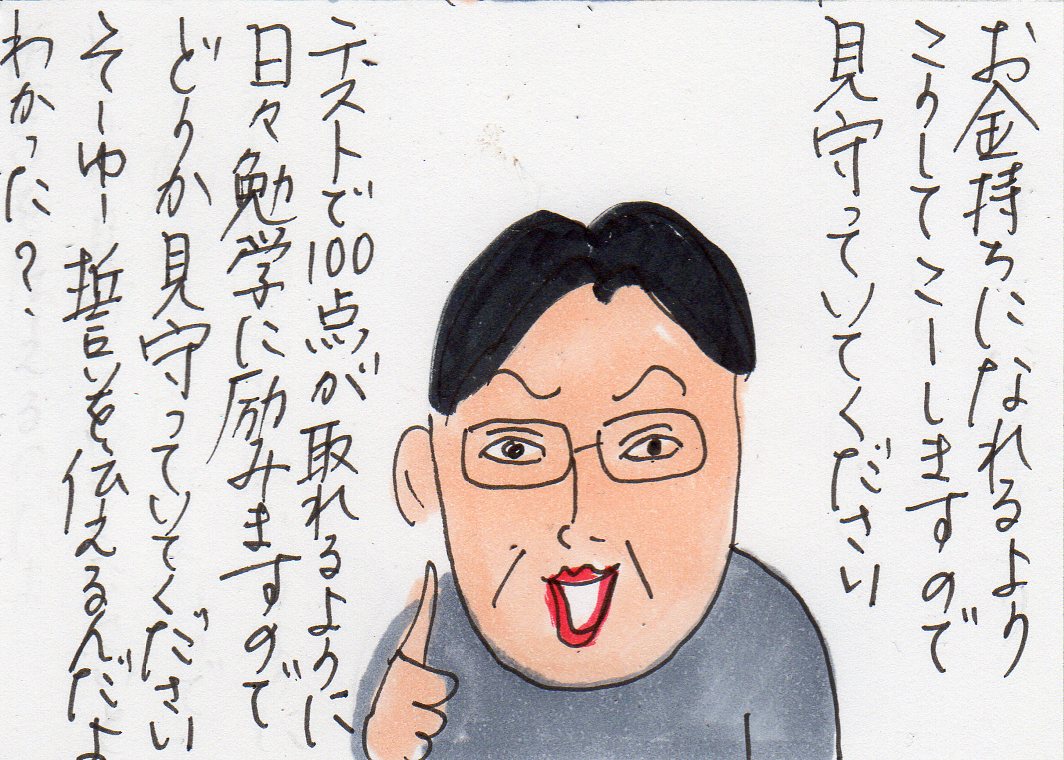 お金持ちになれるよう
こうしてこーしますので
見守っていてください
テストで100点が取れるように
日々勉学に励みますので
どうか見守っていてください
そーゆー誓いを伝えるんだよ
わかった?